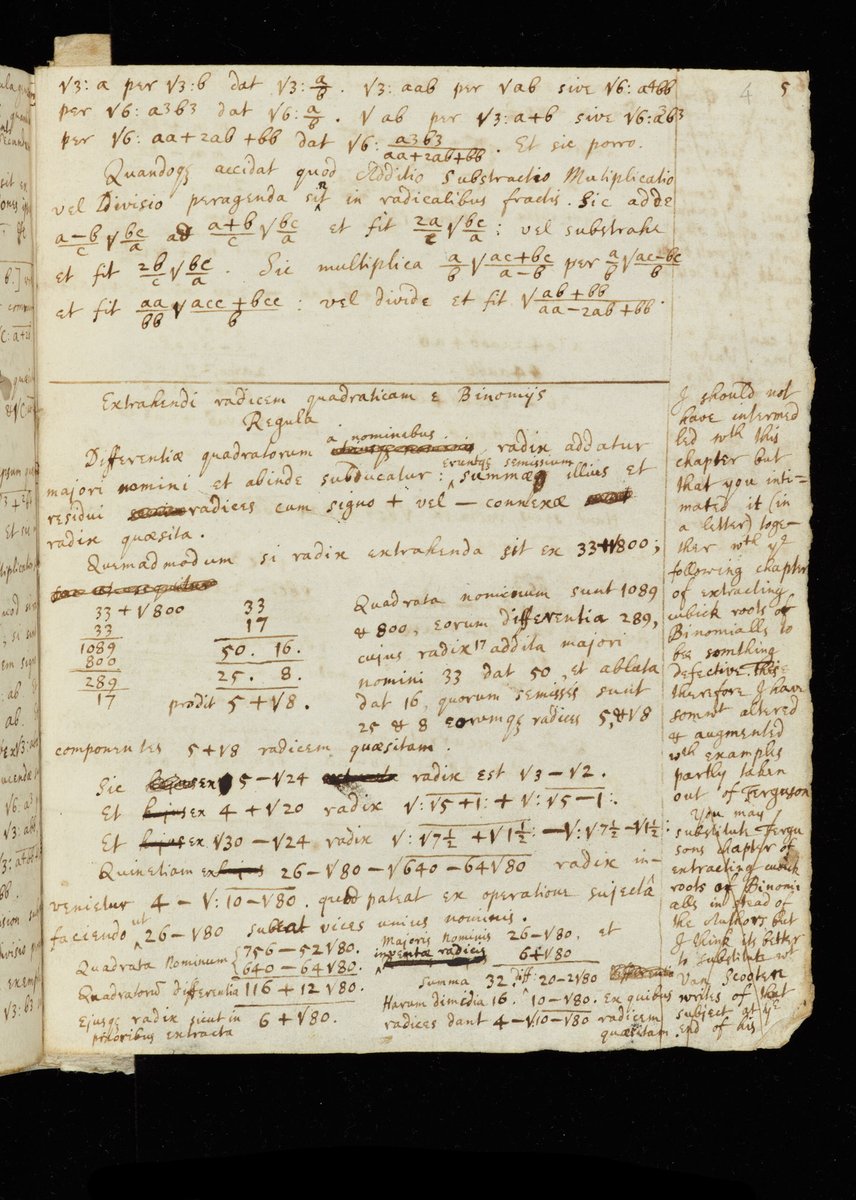 4 5
√3: a per √3: b dat √3: a/b. √3: aab per √ab sive √6: a4bb
per √6: a3b3 dat √6: a/b. √ab per √3: a+b sive √6: a3b3
per √6: aa+2ab+bb dat √6: a3b3/aa+2ab+bb. Et sic porro.
Quandoqꝫ accidat quod Additio Substractio Multiplicatio
vel Divisio peragenda sint in radicalibus fractis. Sic adde
a−b/c √bc/a ad a+b/c √bc/a et fit 2a/c √bc/a: vel substrahe
et fit 2b/c √bc/a. Sic multiplica a/b √ac+bc/a−b per a/b √ac−bc/b
et fit aa/bb √acc+bcc/b: vel divide et fit √ab+bb/aa−2ab+bb.
Extrahendi radicem quadraticam e Binomijs
Regula.
a nominibus
Differentiæ quadratorum radix addatur
eruntqꝫ semissium
majori nomini et abinde subducatur: summæ illius et
residui radices cum signo + vel − connexæ
radix quæsita.
Quemadmodum si radix extrahenda sit ex 33+√800;
33+√800 33
33 17
1089 50. 16.
800 25. 8.
289
17 prodit 5+√8.
Quadrata nominum sunt 1089
& 800, eorum differentia 289,
cujus radix 17 addita majori
nomini 33 dat 50, et ablata
dat 16, quorum semisses sunt
25 & 8 eorumqꝫ radices 5, & √8
componentes 5+√8 radicem quæsitam.
Sic ex 5−√24 radix est √3−√2.
Et ex 4+√20 radix √: √5+1: + √: √5−1:.
Et ex √30−√24 radix √: √7½ + √1½: − √: √7½ − √1½:
Quinetiam ex 26−√80−√640−64√80 radix in-
venietur 4−√: 10−√80. quod pateat ex operatione subjectâ
faciendo ut 26−√80 subeat vices unius nominis.
Quadrata Nominum {756−52√80.
640−64√80.
Quadratorū differentia 116+12√80.
Ejusqꝫ radix sicut in 6+√80.
prioribus extracta
Majoris nominis 26−√80, et
inventæ radicis 6+√80
summa 32. Diff: 20−2√80
Harum dimedia 16. 10−√80. Ex quibus
radices dant 4−√10−√80 radicem
quæsitam.
I should not
have intermed
led wth this
chapter but
that you inti-
mated it (in
a letter) toge-
ther wth ye
following chapter
of extracting
cubick roots of
Binomialls to
be somthing
defective. This
therefore I have
somwt altered
& augmented
wth examples
partly taken
out of Ferguson
You may
substitute Fergu
sons chapter of
extracting cubick
roots of Binomi
alls in stead of
the Authors but
I think its better
to substitute wt
Van Scooten
writes of that
subject at ye
end of his